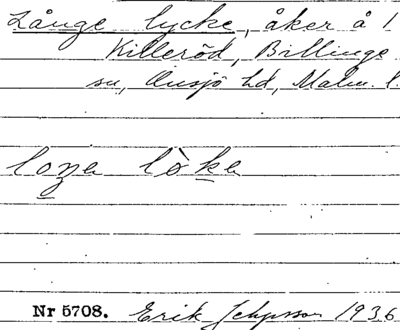 Långe lycke, åker å 1
Killeröd, Billinge
sn, Onsjö hd, Malm. l.
loŋa lòka
Nr 5708. Erik 1936